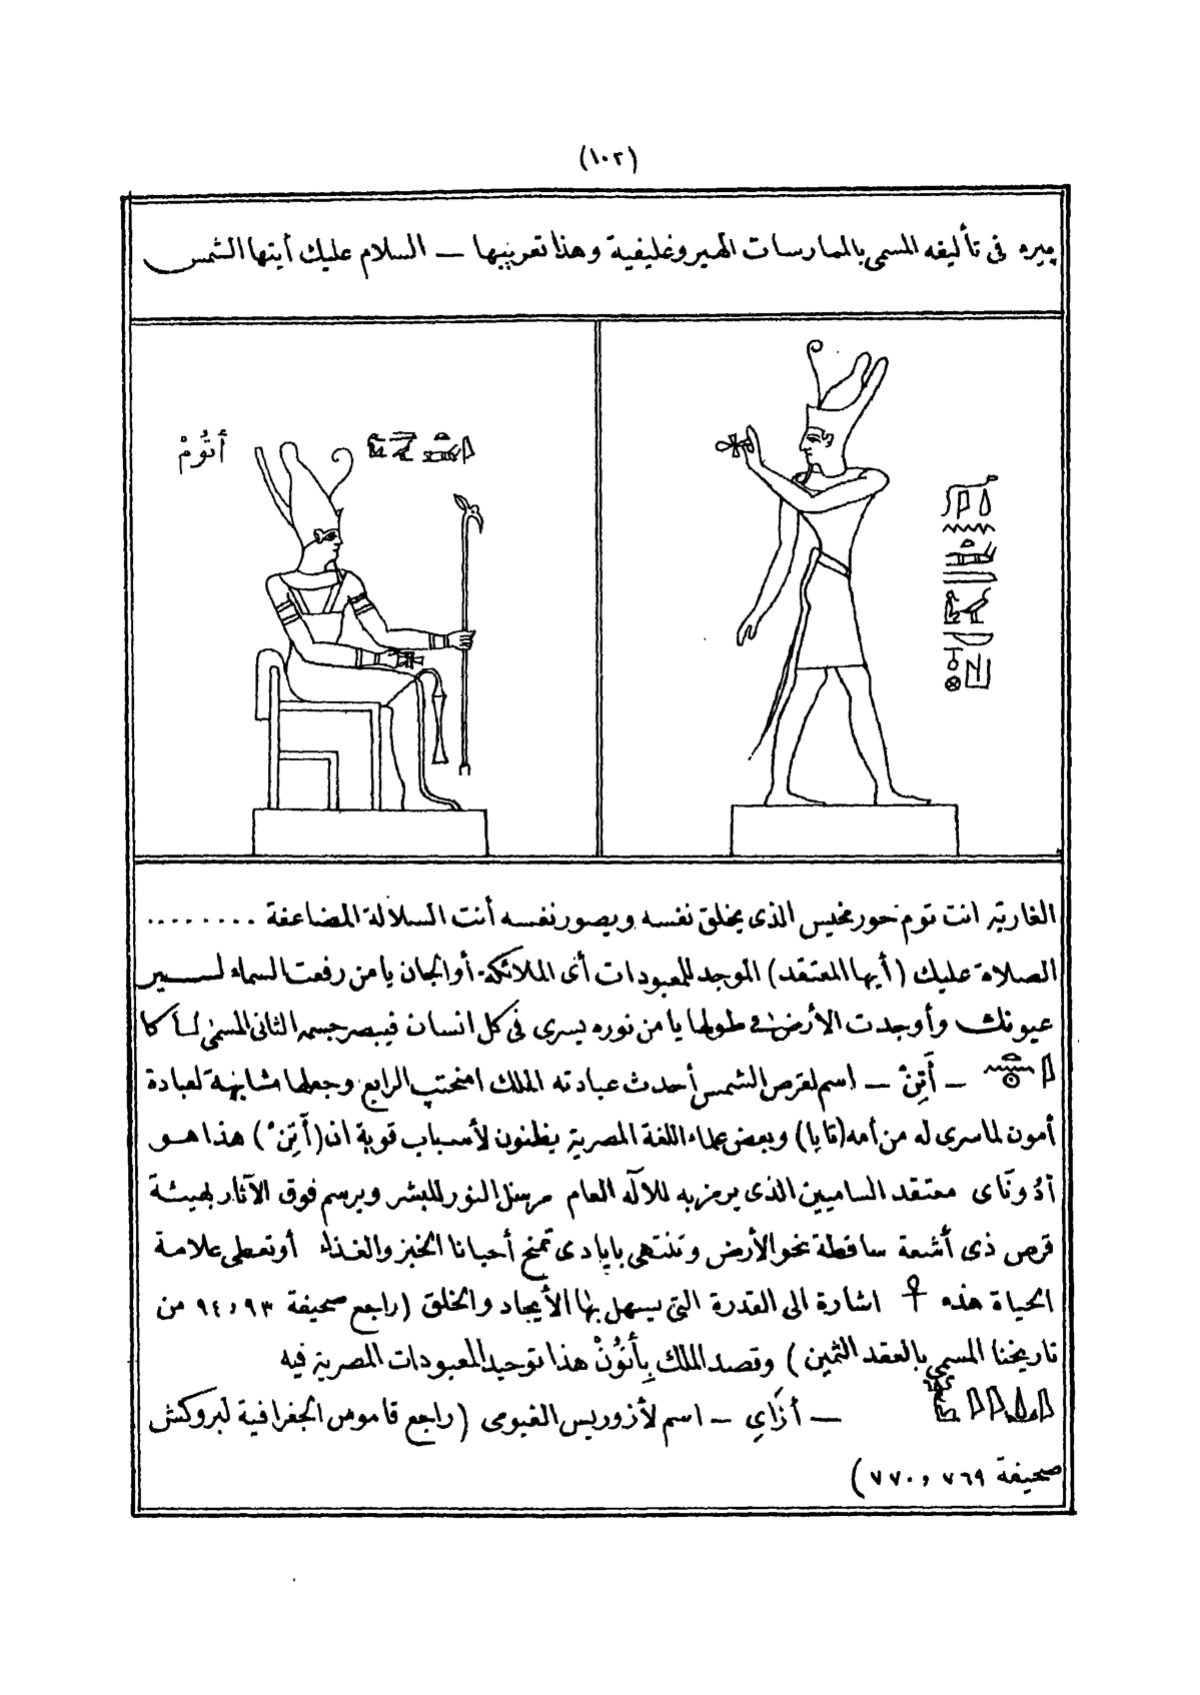 (١٠٢)
پيره فى تأليفه المسمى بالممارسات الهيروغليفية وهذا تعريبها — السلام عليك أيتها الشمس
أَتُومْ
الغاربة انت توم حورمخيس الذى يخلق نفسه ويصور نفسه أنت السلالة المضاعفة ........
الصلاة عليك (أيها المعتقد) الموجد للمعبودات أى الملائكة أو الجان يا من رفعت السماء لسير
عيونك وأوجدت الأرض فى طولها يا من نوره يسرى فى كل انسان فيبصر جسمه الثانى المسمى
— أَتِنْ — اسم لقرص الشمس أحدث عبادته الملك امنحتب الرابع وجعلها مشابهة لعبادة
أمون لما سرى له من أمه (تايا) وبعض علماء اللغة المصرية يظنون لأسباب قوية ان (أَتِنْ) هذا هو
أدُونَاى معتقد الساميين الذى يرمز به للآله العام مرسل النور للبشر ويرسم فوق الآثار بهيئة
قرص ذى أشعة ساقطة نحو الأرض وتنتهى بايادى تمنح أحيانا الخبز والغذاء أو تعطى علامة
الحياة هذه ☥ اشارة الى القدرة التى يسهل بها الأيجاد والخلق (راجع صحيفة ٩٣ و ٩٤ من
تاريخنا المسمى بالعقد الثمين) وقصد الملك بِأَتُونْ هذا توحيد المعبودات المصرية فيه
— أزَاىِ — اسم لأزوريس الفيومى (راجع قاموس الجغرافية لبروكش
صحيفة ٧٦٩ و ٧٧٠)